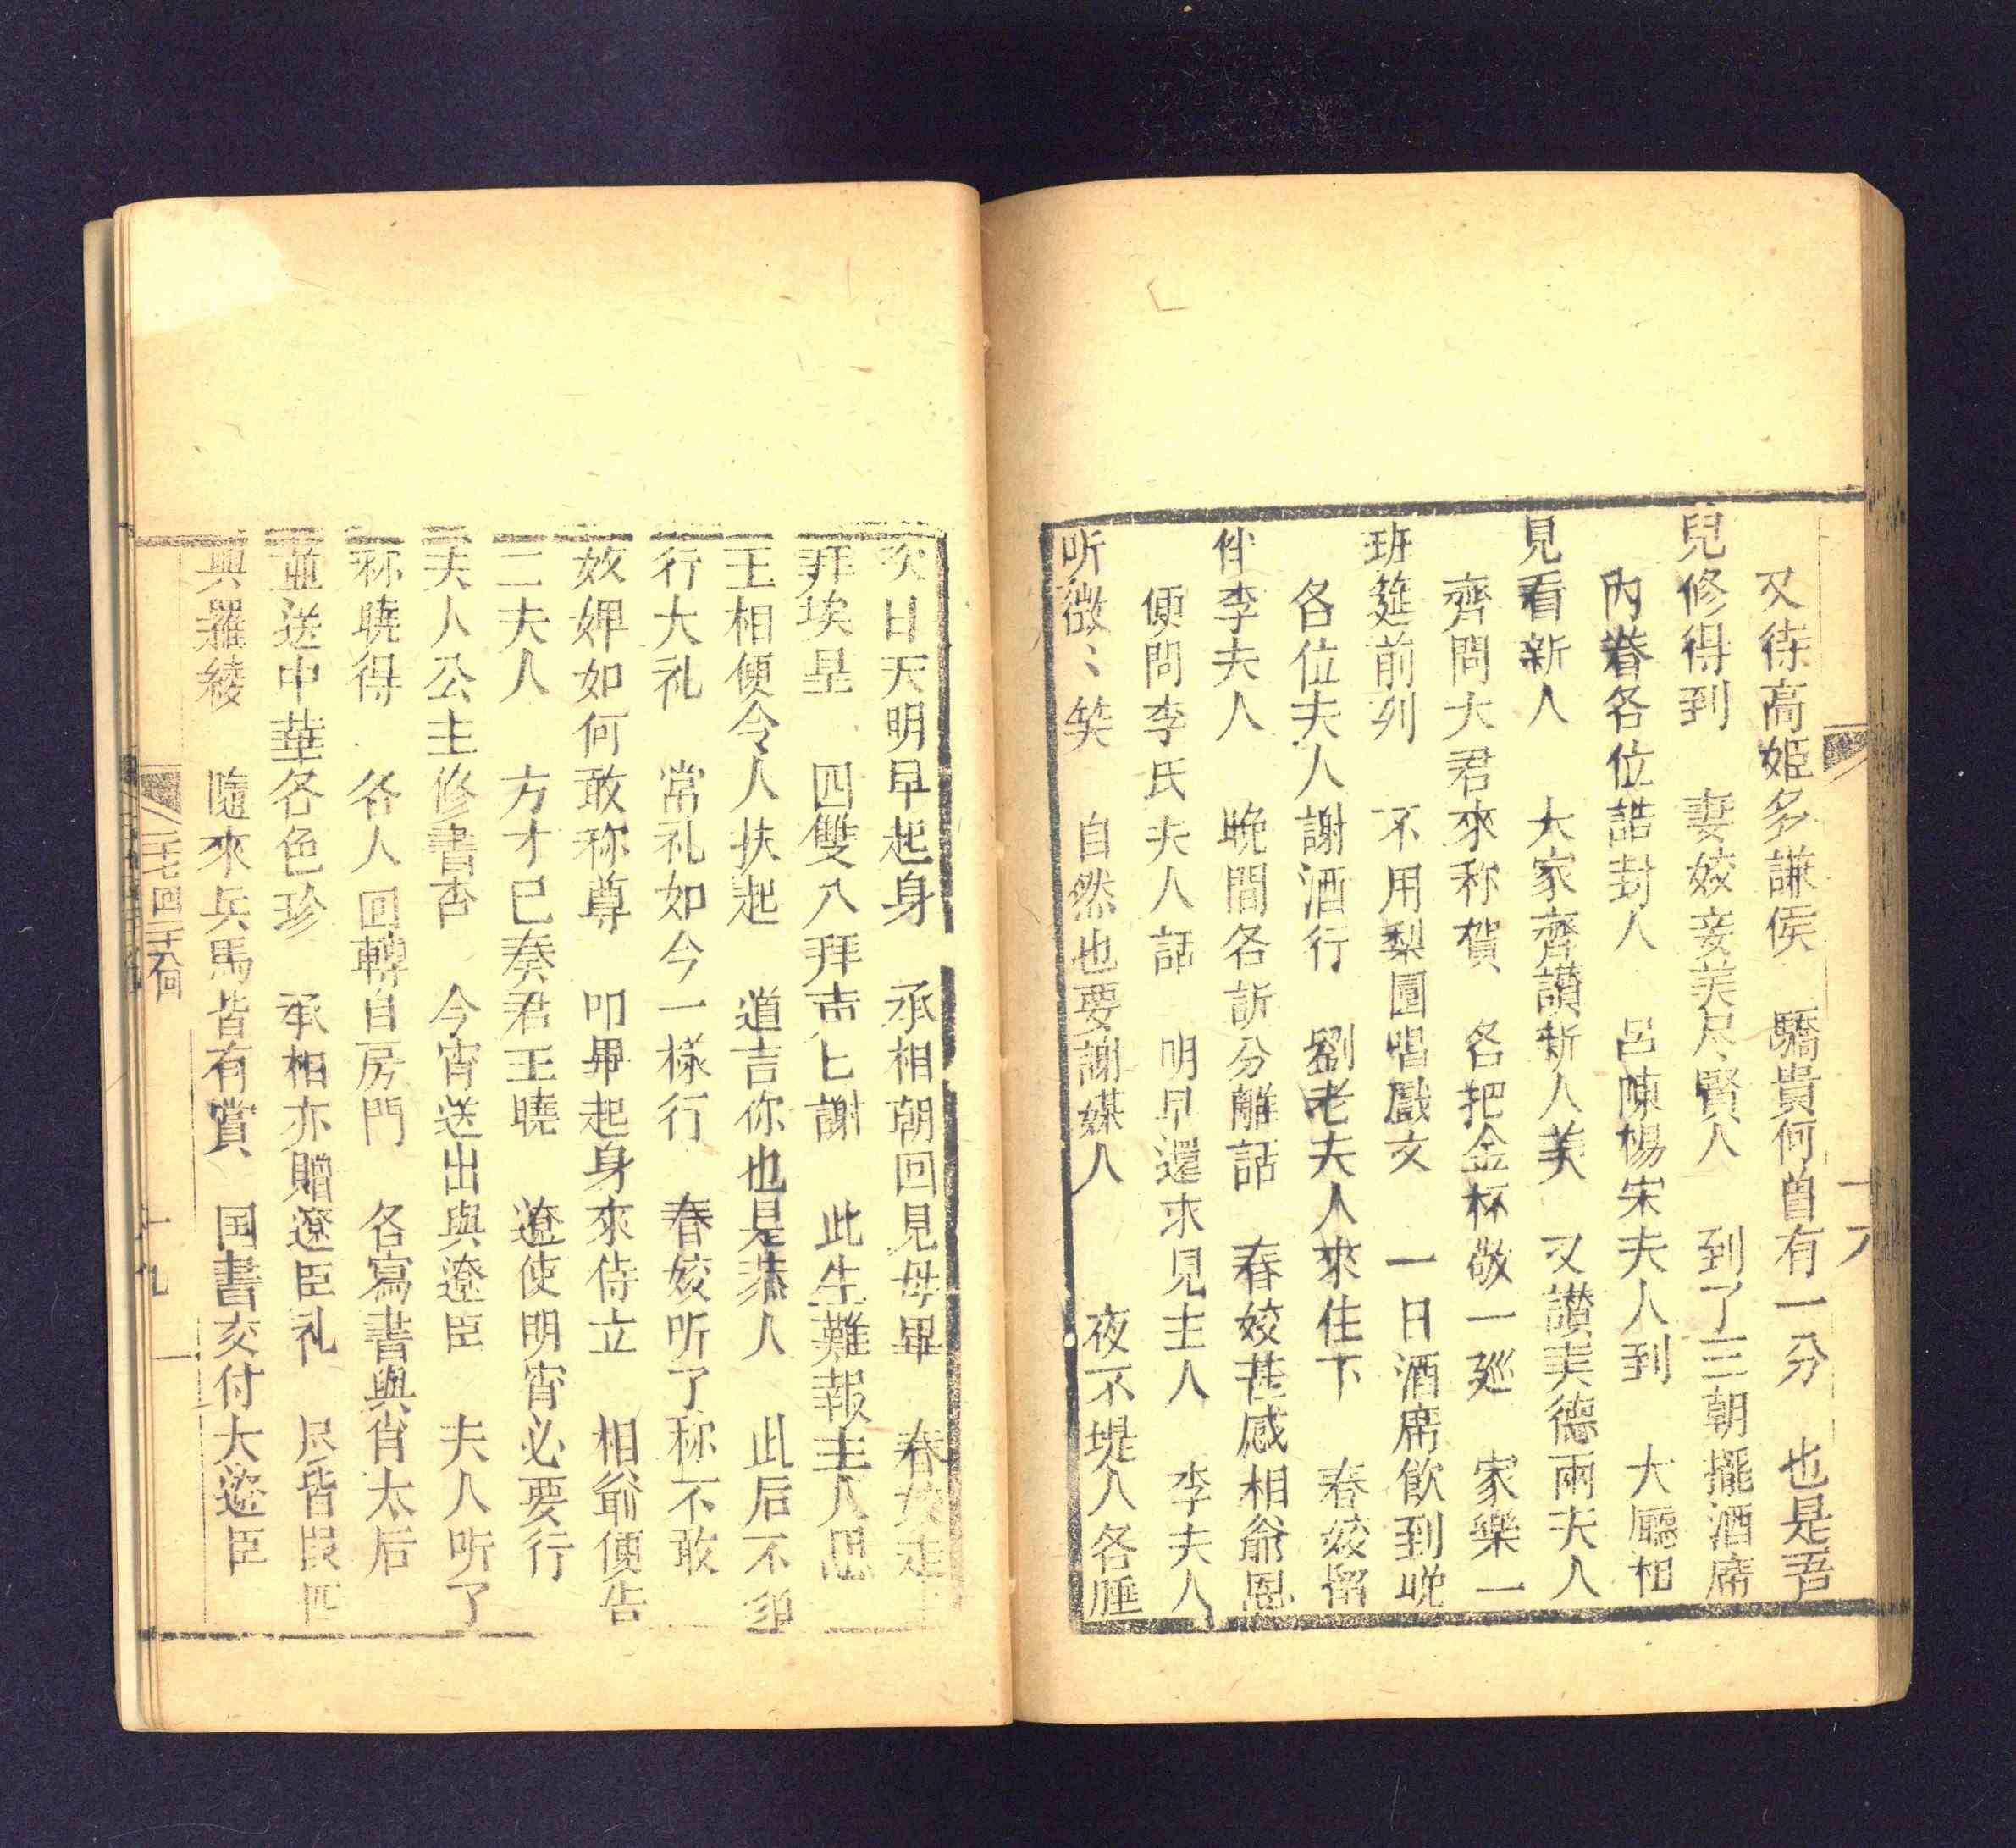 又待高姬多謙侯　驕貴何曾有一分　也是吾
兒修得到　妻姣妾美尽賢人　到了三朝擺酒席
內眷各位誥封人　呂陳楊宋夫人到　大廳相
見看新人　大家齊讃新人美　又讃美德兩夫人
齊問大君來称賀　各把金杯敬一廵　家樂一
班筵前列　不用梨園唱戲文　一日酒席飲到晚
各位夫人謝酒行　劉老夫人來住下　春姣留
伴李夫人　晚間各訴分離話　春姣甚感相爺恩
便問李氏夫人話　明早還求見主人　李夫人
听微〻笑　自然也要謝媒人　夜不堤人各睡
次日天明早起身　承相朝回見母畢　春姣走上
拜埃㞷　四雙八拜声匕謝　此生難報主人恩
王相便令人扶起　道吉你也是恭人　此后不須
行大礼　常礼如今一樣行　春姣听了称不敢
奴婢如何敢称尊　叩畢起身來侍立　相爺便告
二夫人　方才已奏君王曉　遼使明宵必要行
夫人公主修書否　今宵送出與遼臣　夫人听了
称曉得　各人回轉自房門　各寫書與肖太后
並送中華各色珍　承相亦贈遼臣礼　尽皆叚匹
與羅綾　隨來兵馬皆有賞　国書交付大遼臣
十九